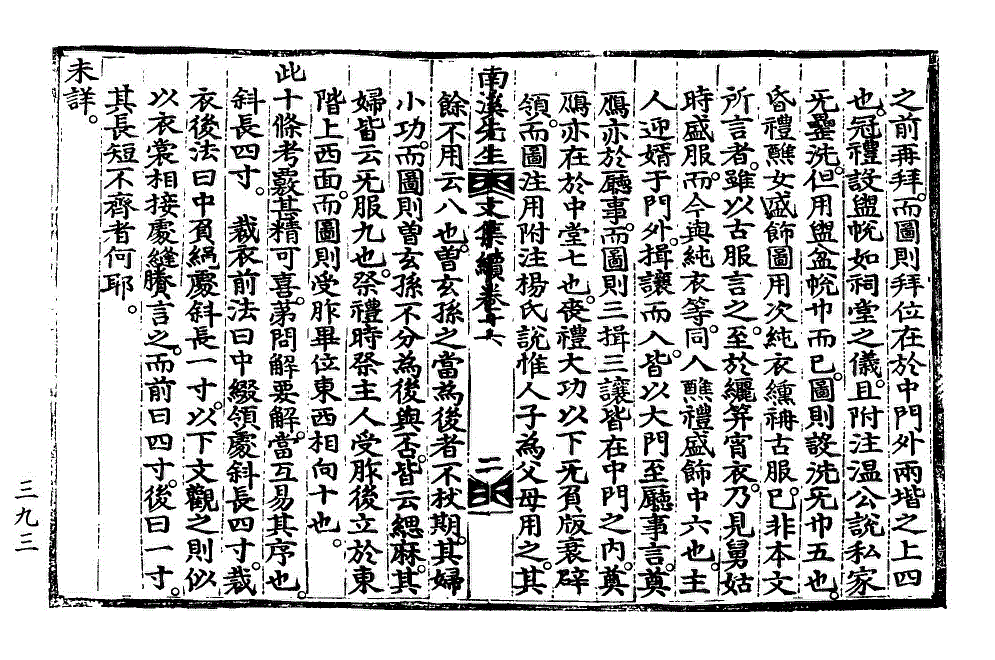 之前再拜。而圖則拜位在於中門外兩堦之上四
也。冠禮設盥帨如祠堂之儀。且附注温公說私家
旡罍洗。但用盥盆帨巾而已。圖則設洗旡巾五也。
昏禮醮女盛飾圖用次純衣纁袡古服。已非本文
所言者。雖以古服言之。至於纚笄宵衣。乃見舅姑
時盛服。而今與純衣等。同入醮禮盛飾中六也。主
人迎婿于門外。揖讓而入。皆以大門至廳事言。奠
鴈亦於廳事。而圖則三揖三讓皆在中門之內。奠
鴈亦在於中堂七也。喪禮大功以下旡負版衰辟
領。而圖注用附注楊氏說惟人子為父母用之。其
南溪先生文集續卷十六 二
餘不用云八也。曽玄孫之當為後者不杖期。其婦
小功。而圖則曽玄孫不分為後與否。皆云緦麻。其
婦皆云旡服九也。祭禮時祭主人受胙後立於東
階上西面。而圖則受胙畢位東西相向十也。
此十條考覈甚精可喜。第問解要解。當互易其序也。
斜長四寸。 裁衣前法曰中綴領處斜長四寸。裁
衣後法曰中負繩處斜長一寸。以下文觀之則似
以衣裳相接處縫賸言之。而前曰四寸。後曰一寸。
其長短不齊者何耶。
未詳。
三九三